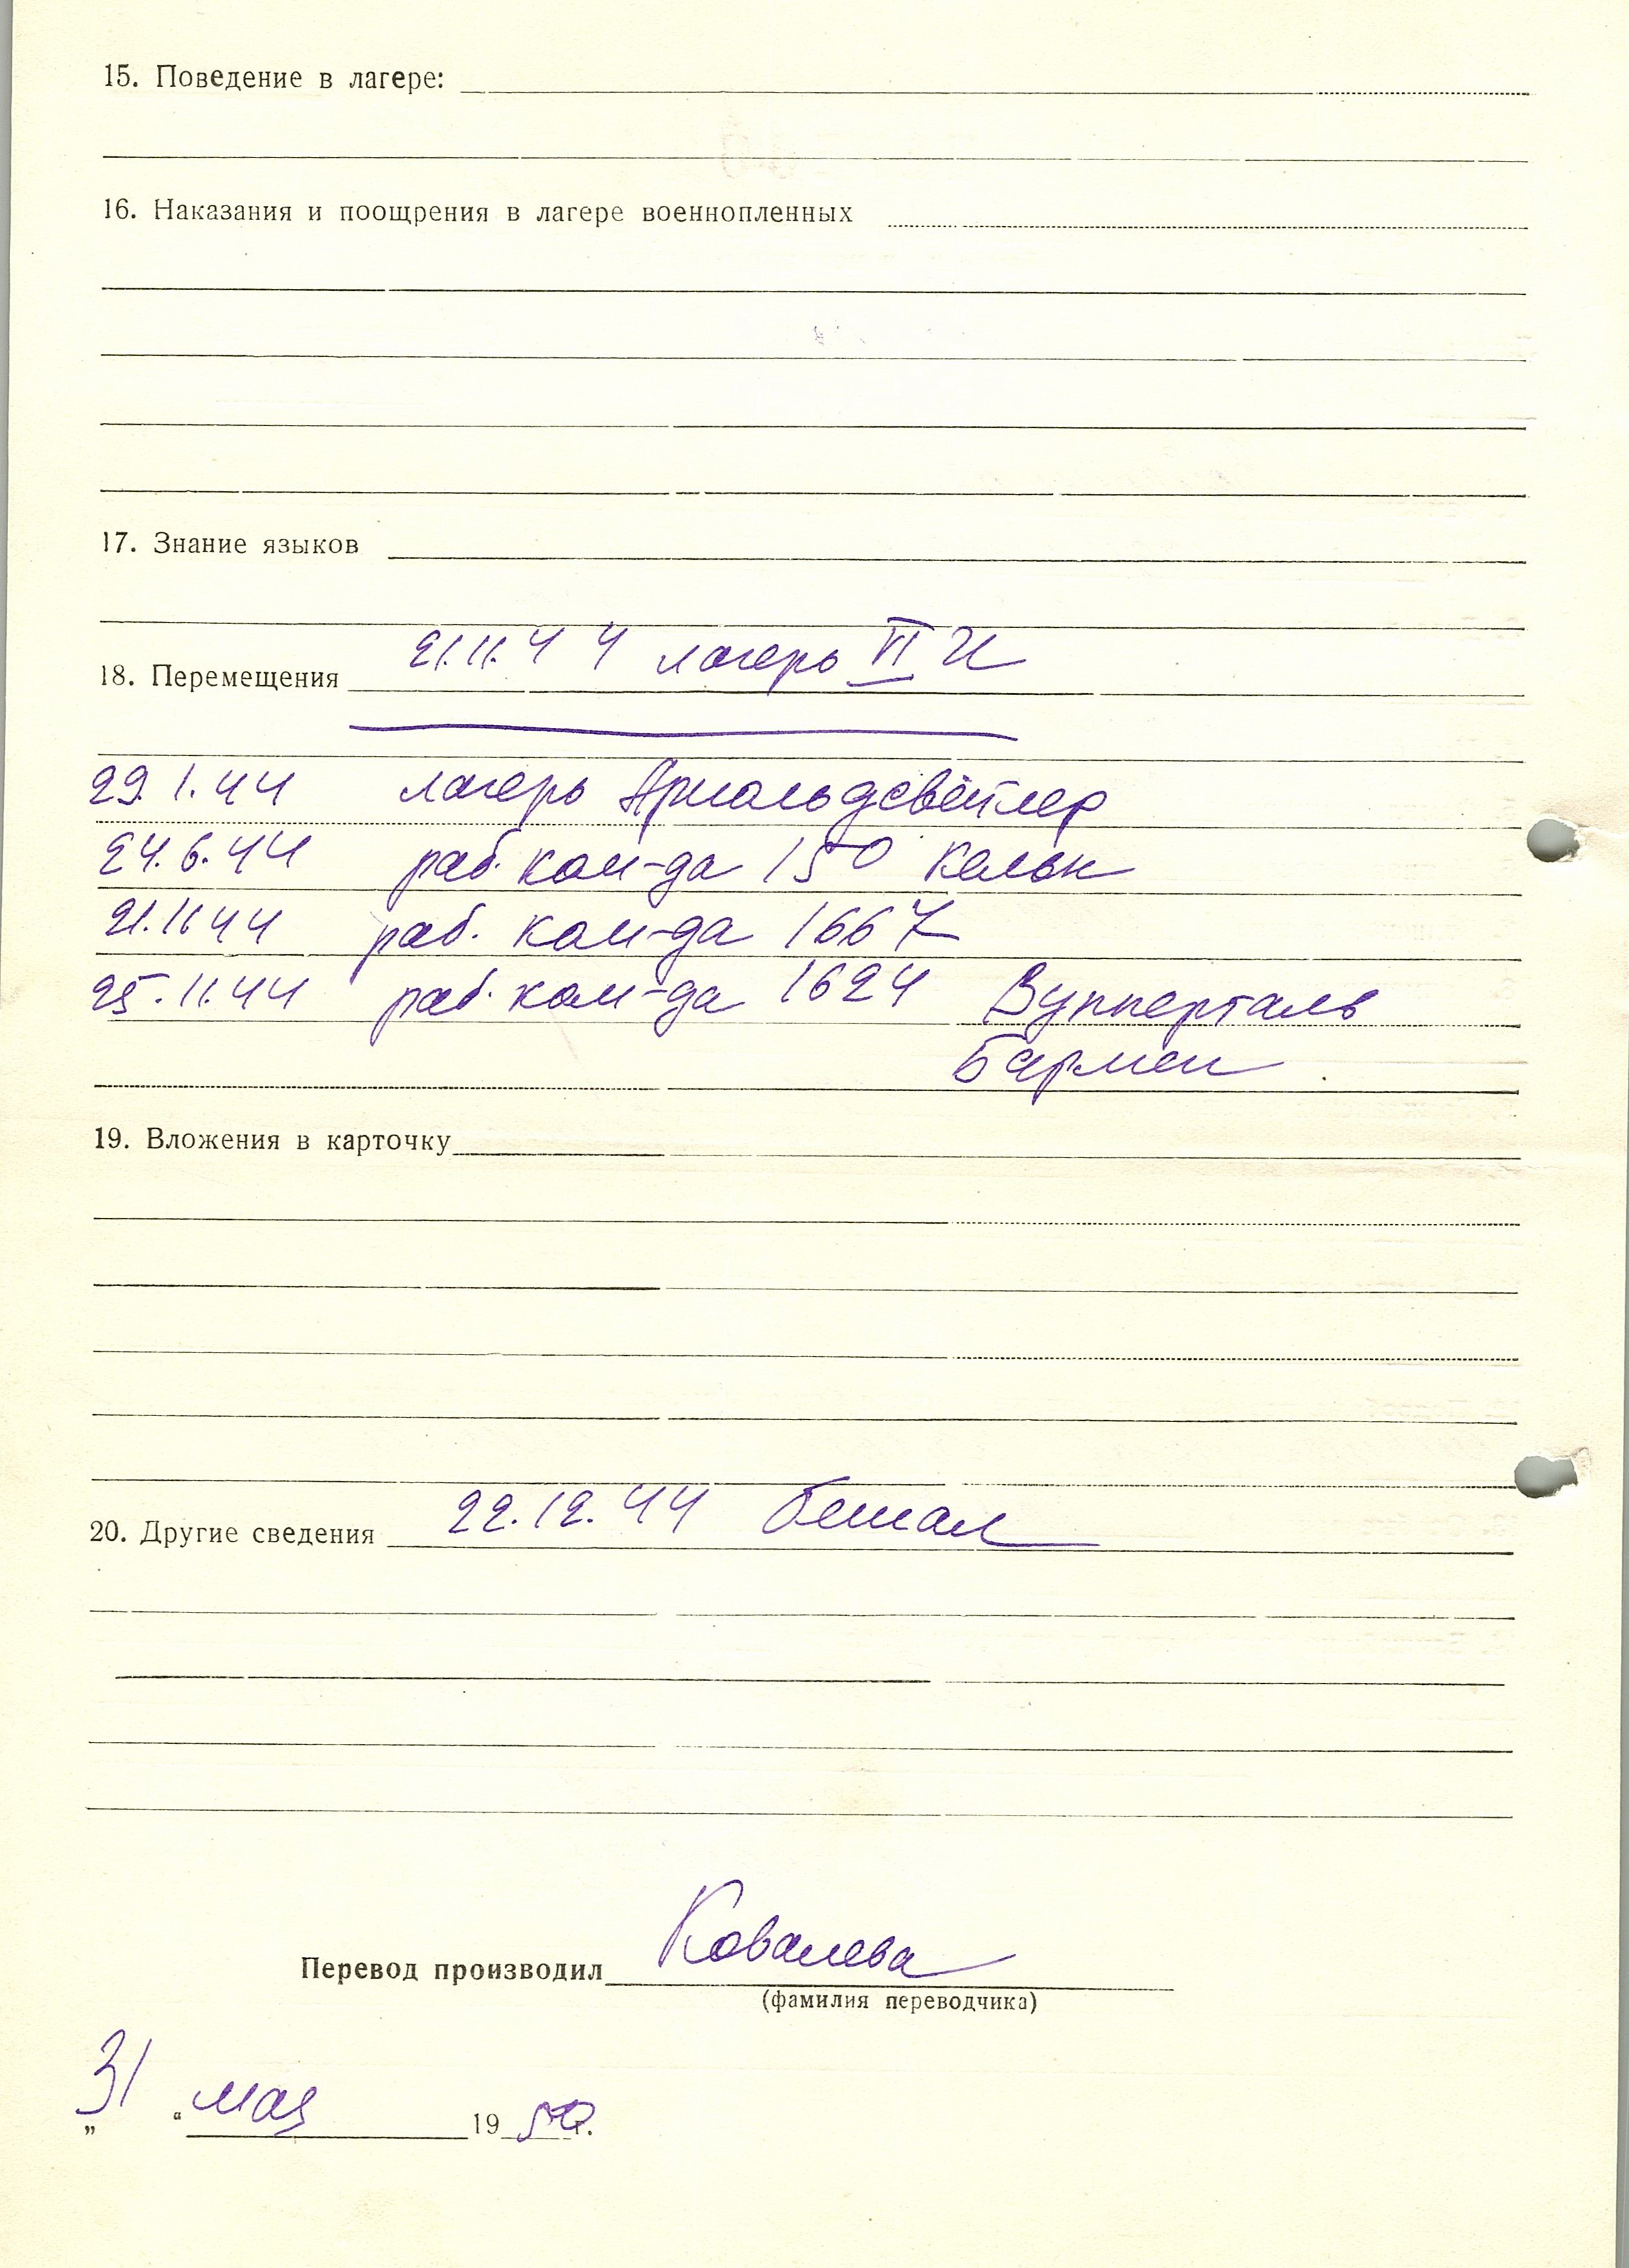 15. Поведение в лагере:
16. Наказания и поощрения в лагере военнопленных
17. Знание языков
18. Перемещения 21.11.44 лагерь VI
29.1.44 лагерь Арнольдсвейлер
24.6.44 раб. ком-да 150 Кельн
21.11.44 раб. ком-да 1667
25.11.44 раб. ком-да 1624 Вупперталь
Бармен
19. Вложения в карточку
20. Другие сведения 22.12.44 бежал
Перевод производил Ковалева
(фамилия переводчика)
„31“ мая 1950 г.